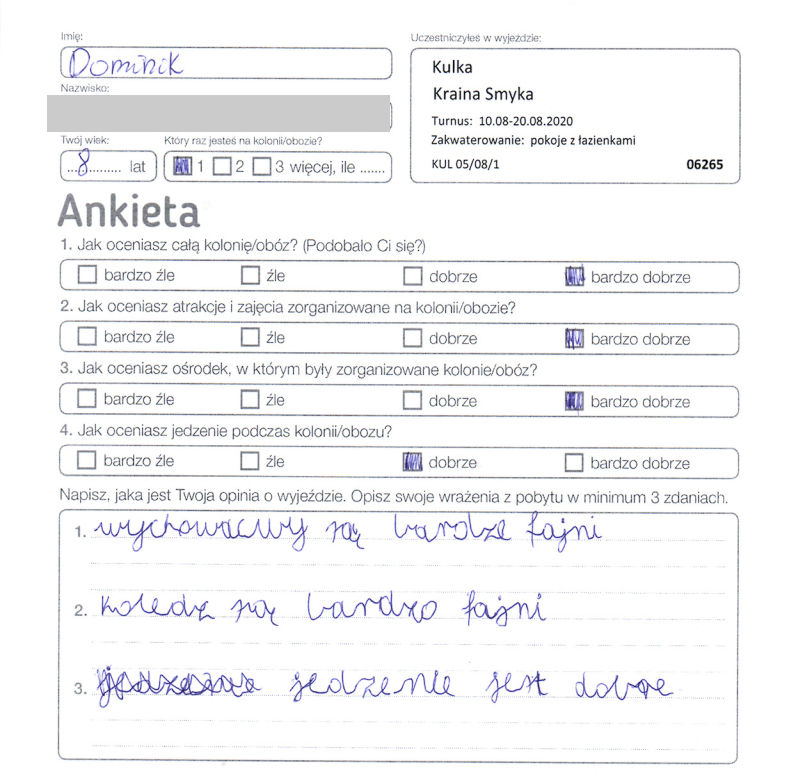 Imię:
Dominik
Nazwisko:
Twój wiek:
...8......... lat
Który raz jesteś na kolonii/obozie?
1 2 3 więcej, ile .......
Uczestniczyłeś w wyjeździe:
Kulka
Kraina Smyka
Turnus: 10.08-20.08.2020
Zakwaterowanie: pokoje z łazienkami
KUL 05/08/1 06265
Ankieta
1. Jak oceniasz całą kolonię/obóz? (Podobało Ci się?)
bardzo źle źle dobrze bardzo dobrze
2. Jak oceniasz atrakcje i zajęcia zorganizowane na kolonii/obozie?
bardzo źle źle dobrze bardzo dobrze
3. Jak oceniasz ośrodek, w którym były zorganizowane kolonie/obóz?
bardzo źle źle dobrze bardzo dobrze
4. Jak oceniasz jedzenie podczas kolonii/obozu?
bardzo źle źle dobrze bardzo dobrze
Napisz, jaka jest Twoja opinia o wyjeździe. Opisz swoje wrażenia z pobytu w minimum 3 zdaniach.
1. wychowacwy są bardze fajni
2. koledz są bardzo fajni
3. jedzenie jest dobre